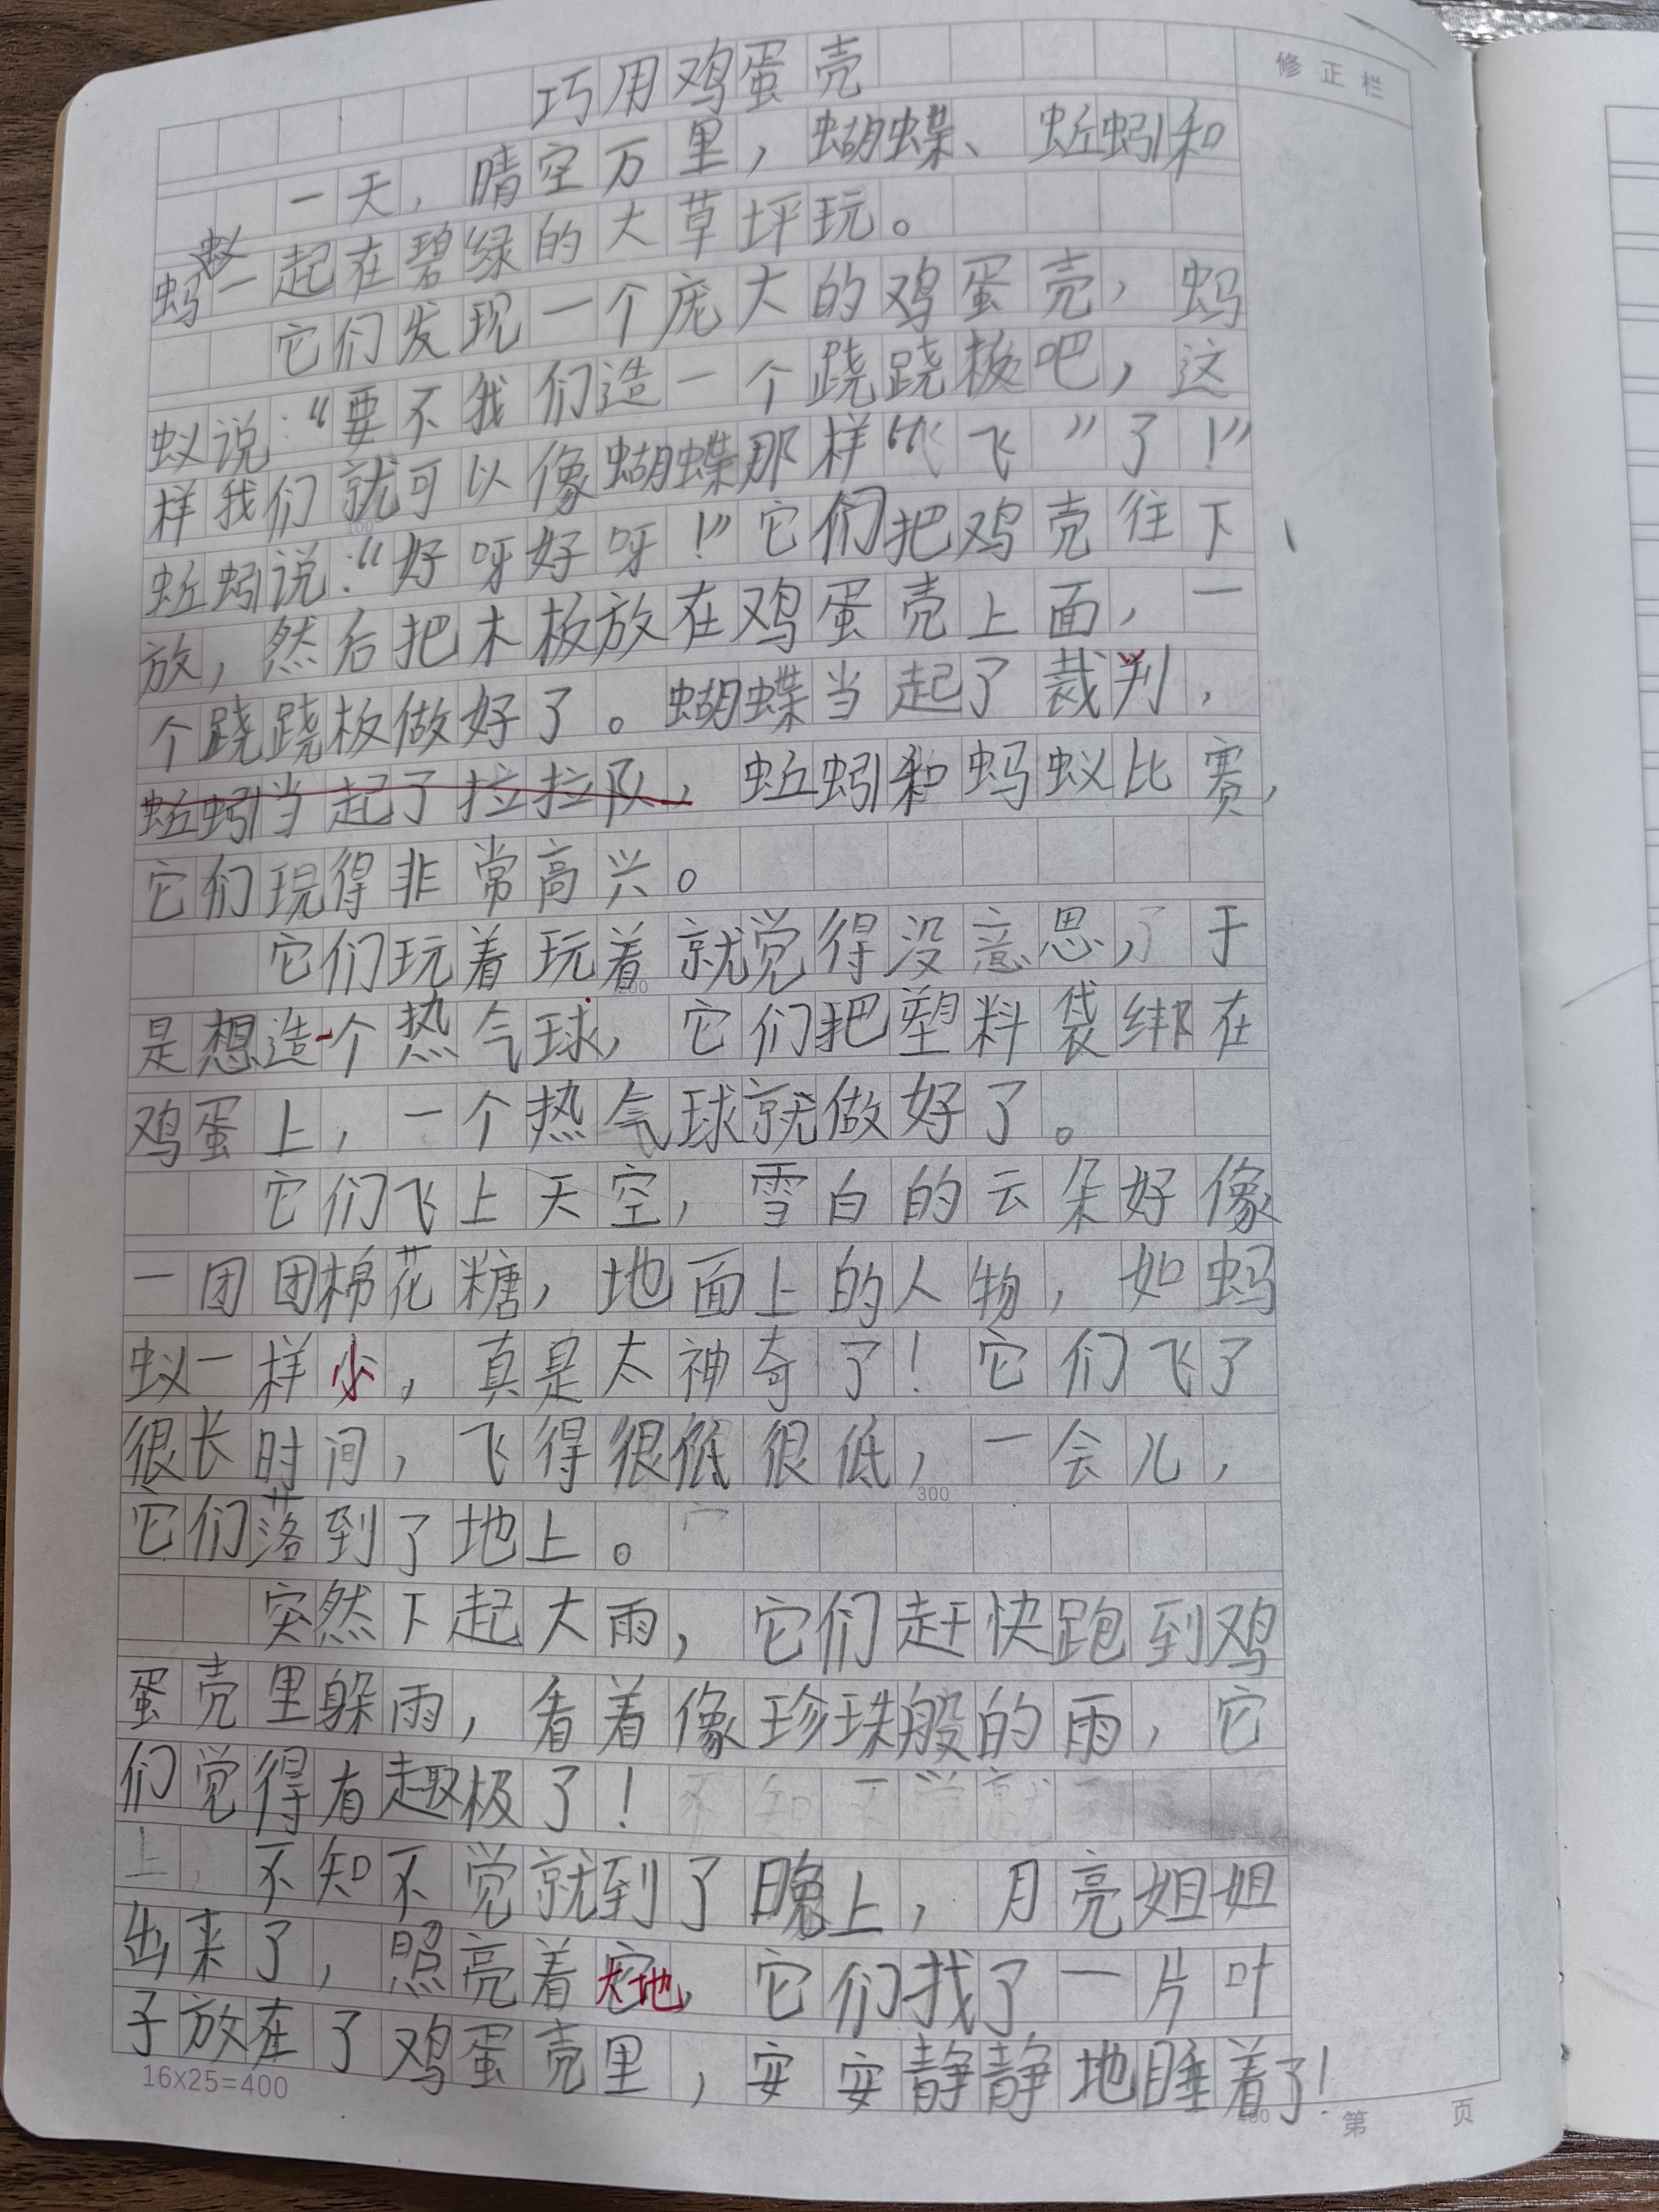 修正栏
巧用鸡蛋壳
一天，晴空万里，蝴蝶、蚯蚓和
蚂蚁一起在碧绿的大草坪玩。
它们发现一个庞大的鸡蛋壳，蚂
蚁说：“要不我们造一个跷跷板吧，这
样我们就可以像蝴蝶那样“飞”了！”
蚯蚓说：“好呀好呀！”它们把鸡壳往下
放，然后把木板放在鸡蛋壳上面，一
个跷跷板做好了。蝴蝶当起了裁判，
蚯蚓当起了拉拉队，蚯蚓和蚂蚁比赛，
它们玩得非常高兴。
它们玩着玩着就觉得没意思，了于
是想造一个热气球，它们把塑料袋绑在
鸡蛋上，一个热气球就做好了。
它们飞上天空，雪白的云朵好像
一团团棉花糖，地面上的人物，如蚂
蚁一样小，真是太神奇了！它们飞了
很长时间，飞得很低很低，一会儿，
它们落到了地上。
突然下起大雨，它们赶快跑到鸡
蛋壳里躲雨，看着像珍珠般的雨，它
们觉得有趣极了！
不知不觉就到了晚上，月亮姐姐
出来了，照亮着大地，它们找了一片叶
子放在了鸡蛋壳里，安安静静地睡着了！
100
200
300
400
16x25=400
第 页